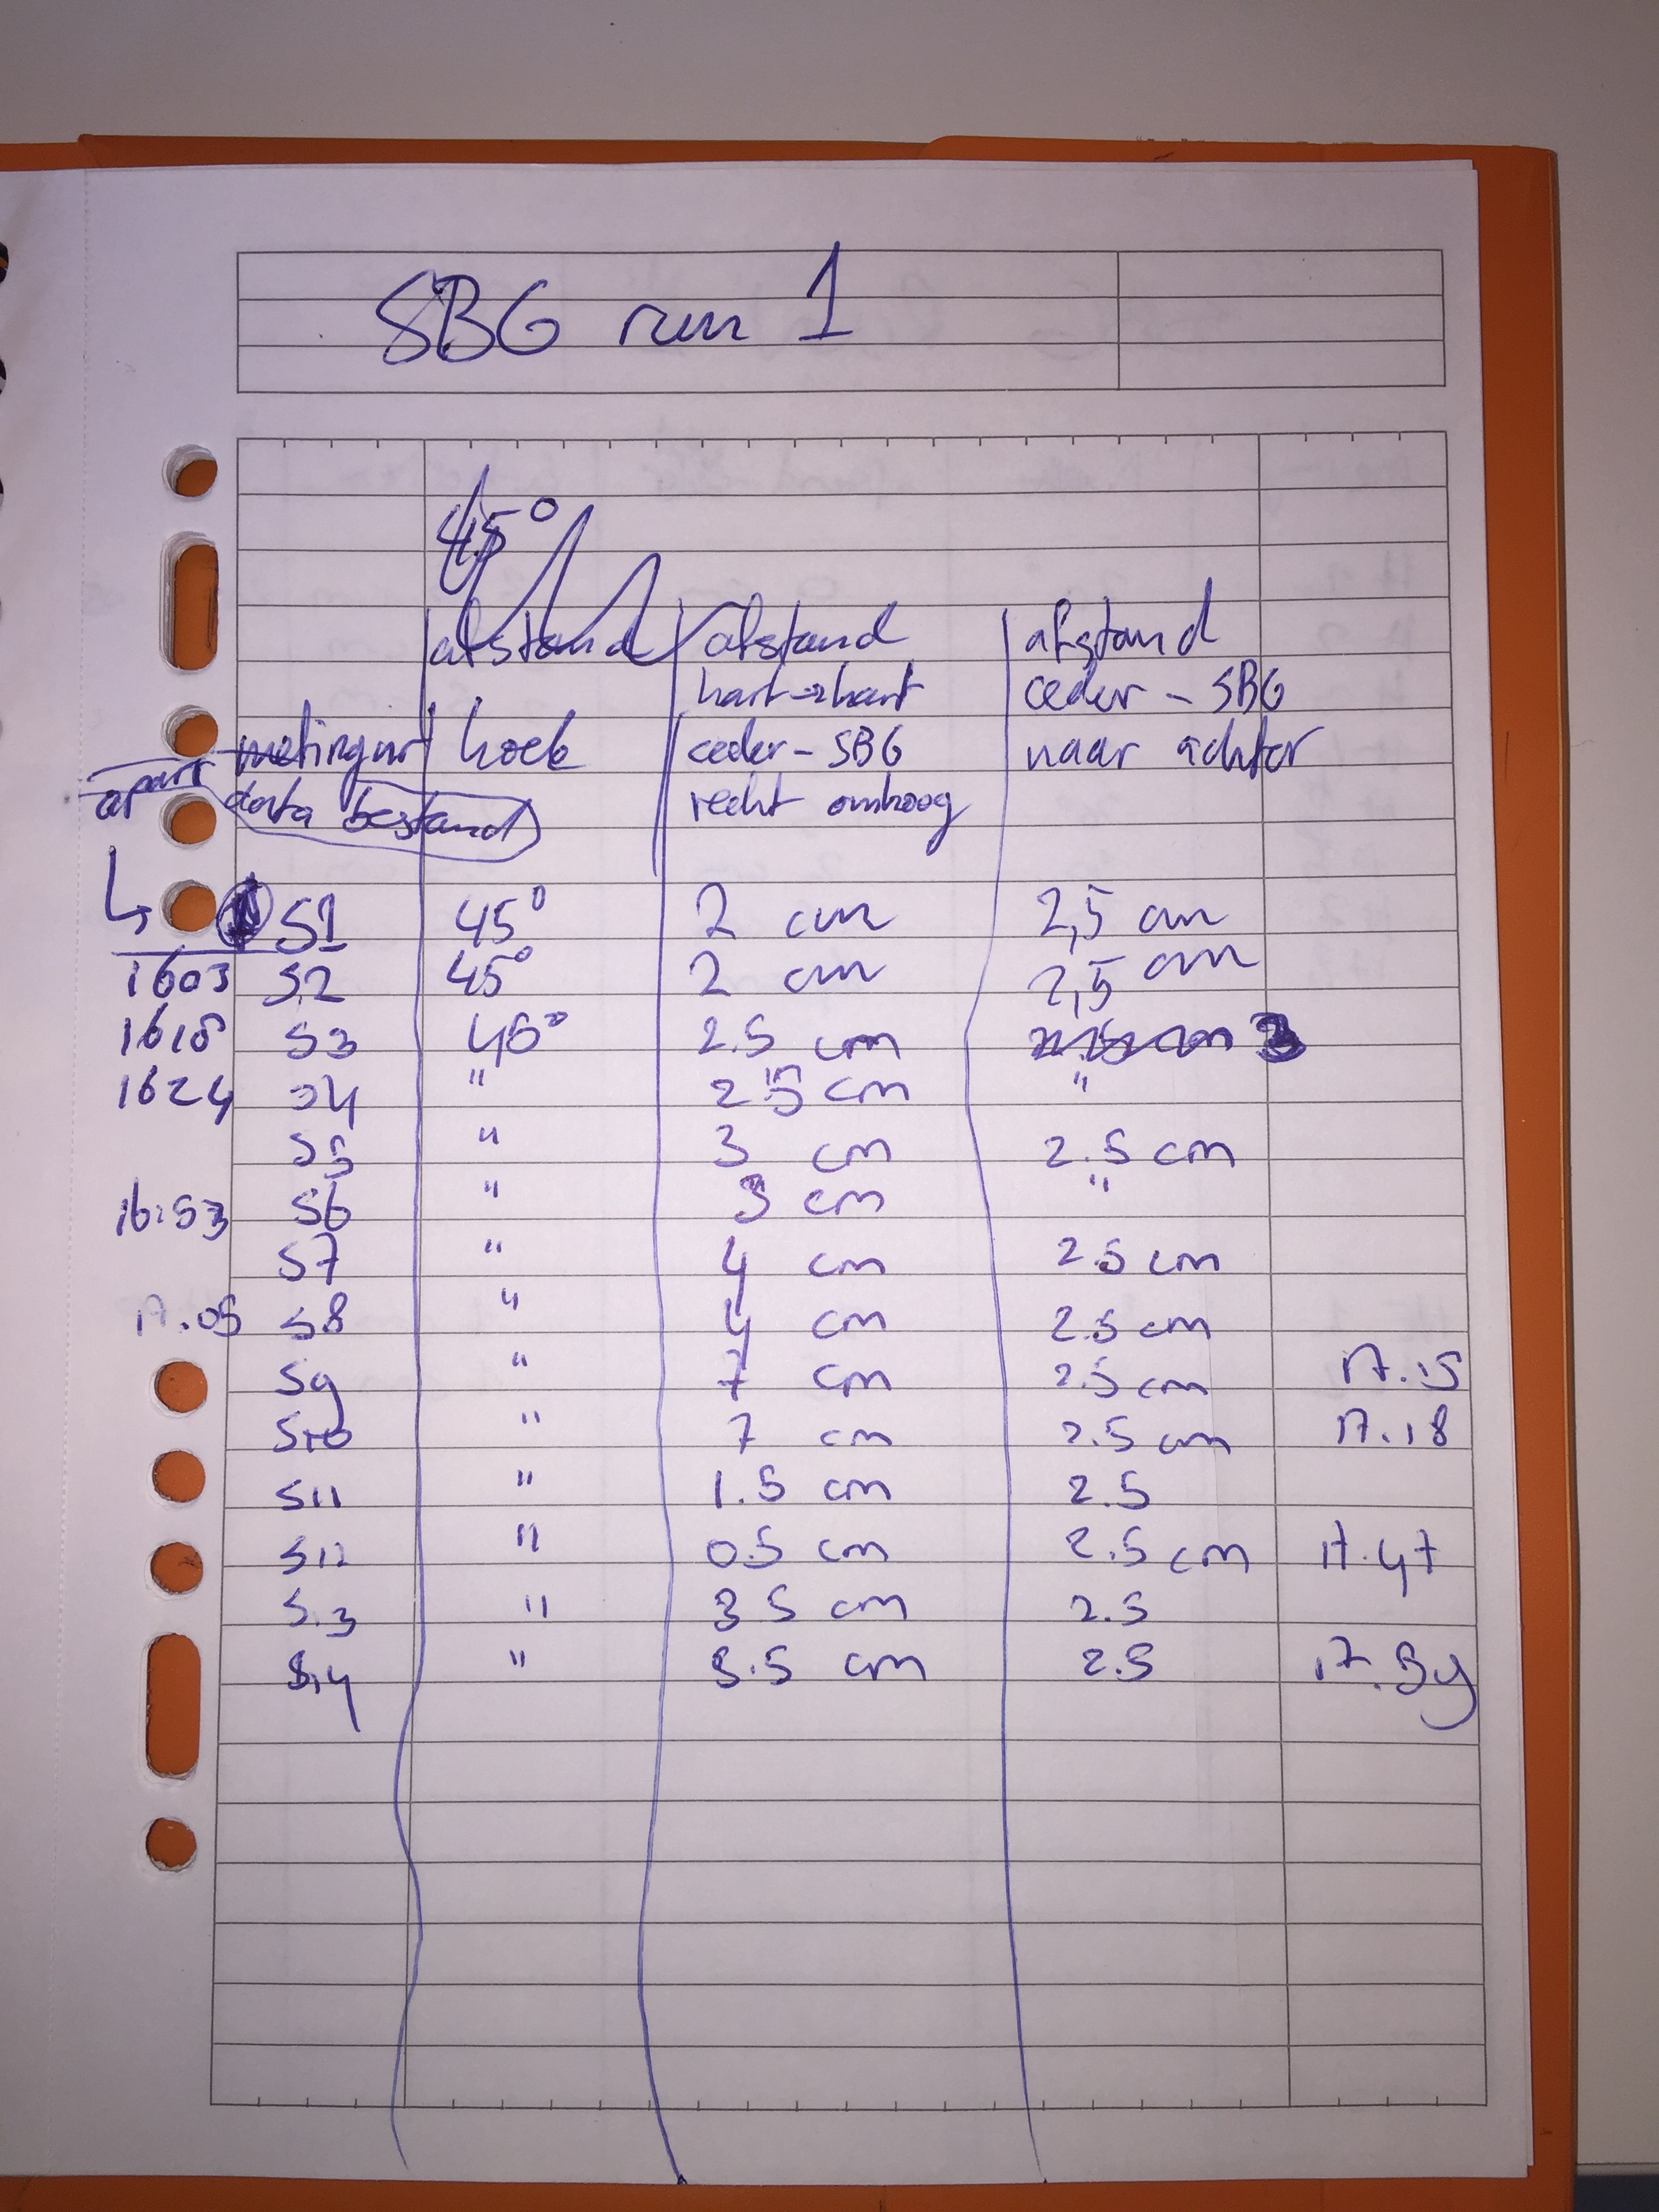 SBG run 1
45°
afstand afstand afstand
hart → hart ceder - SBG
metingnr hoek ceder - SBG naar achter
apart data bestand recht omhoog
S1 45° 2 cm 2,5 cm
1603 S2 45° 2 cm 2,5 cm
1618 S3 45° 2.5 cm 3
1624 S4 " 2.5 cm "
S5 " 3 cm 2.5 cm
16:53 S6 " 3 cm "
S7 " 4 cm 2.5 cm
17.05 S8 " 4 cm 2.5 cm
S9 " 7 cm 2.5 cm 17.15
S10 " 7 cm 2.5 cm 17.18
S11 " 1.5 cm 2.5
S12 " 0.5 cm 2.5 cm 17.47
S13 " 3 5 cm 2.5
S14 " 5.5 cm 2.5 17.59